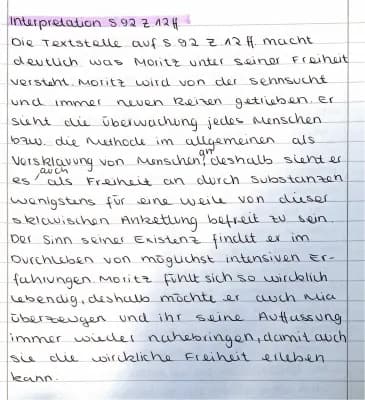 Interpretation S 92 Z 12 ff
Die Textstelle auf S 92 Z 12 ff. macht
deutlich was Moritz unter seiner Freiheit
versteht. Moritz wird von der Sehnsucht
und immer neuen Reizen getrieben. Er
sieht die Überwachung jedes Menschen
bzw. die Methode im allgemeinen als
Versklavung von Menschen an, deshalb sieht er
es auch als Freiheit an durch Substanzen
wenigstens für eine Weile von dieser
sklavischen Ankettung befreit zu sein.
Der Sinn seiner Existenz findet er im
Durchleben von möglichst intensiven Er-
fahrungen. Moritz fühlt sich so wircklich
lebendig, deshalb möchte er auch Mia
überzeugen und ihr seine Auffassung
immer wieder nahebringen, damit auch
sie die wirckliche Freiheit erleben
kann.